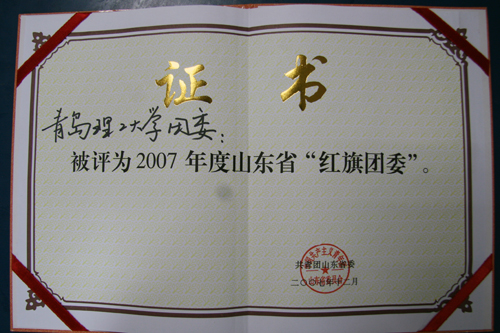 证书
青岛理工大学团委：
被评为2007年度山东省“红旗团委”。
共青团山东省委
二〇〇七年十二月